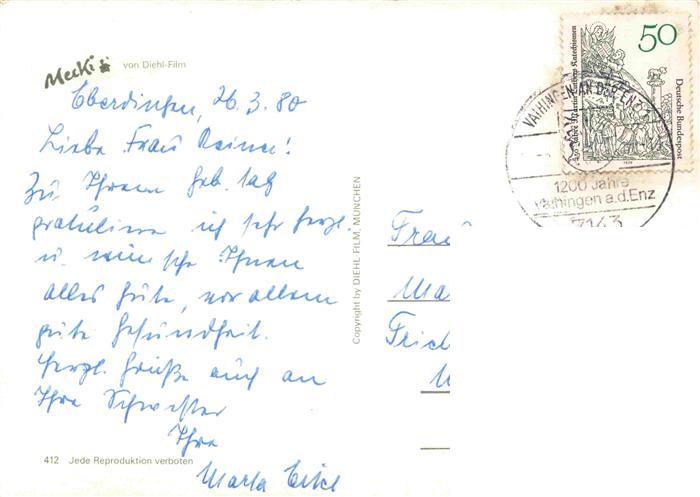 Mecki von Diehl-Film
Eberdingen, 26.3.80
Liebe Frau Reiner!
Zu Ihrem Geb. tag
gratuliere ich sehr herzl.
u. wünsche Ihnen
alles Gute, vor allem
gute Gesundheit.
Herzl. Grüße auch an
Ihre Schwester
Ihre
Marta
412 Jede Reproduktion verboten
Copyright by DIEHL-FILM, MÜNCHEN
50
Deutsche Bundespost
450 Jahre Martin Luthers Katechismen
1979
VAIHINGEN AN DER ENZ
1200 Jahre
Vaihingen a.d.Enz
7143
Frau
Ma
Frick